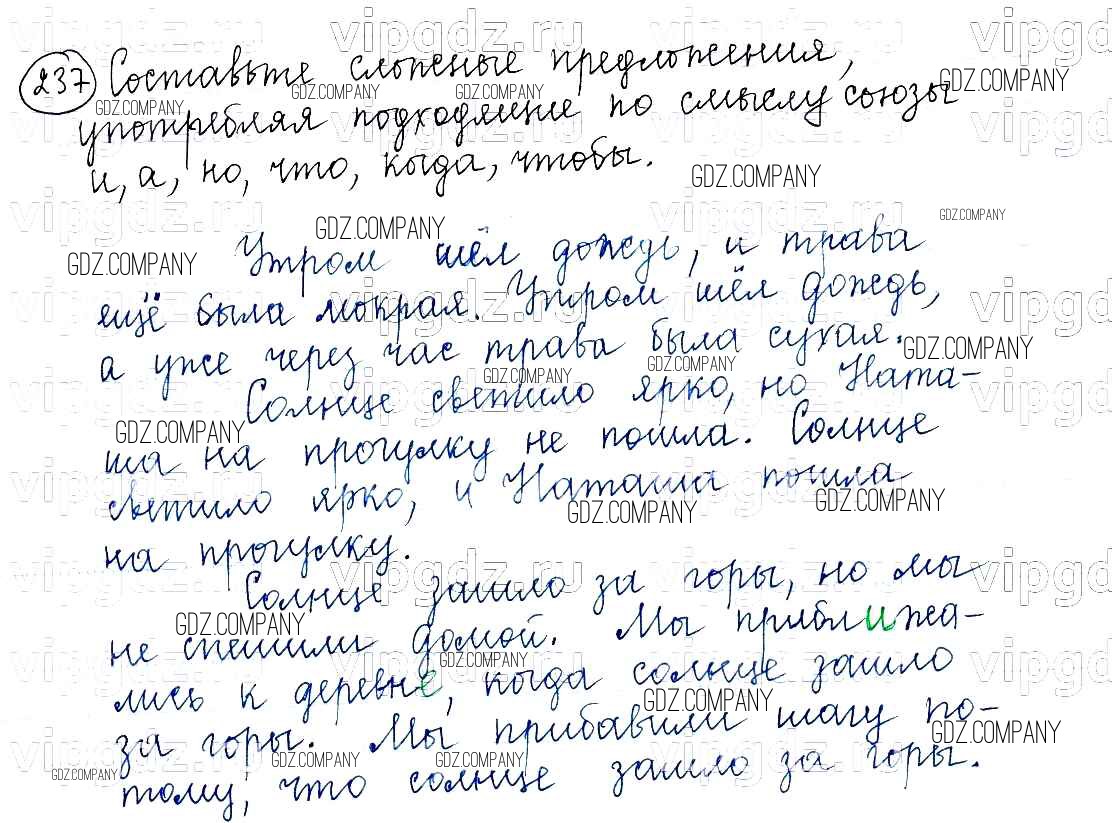 237 Составьте сложные предложения,
употребляя подходящие по смыслу союзы
и, а, но, что, когда, чтобы.
Утром шёл дождь, и трава
ещё была мокрая. Утром шёл дождь,
а уже через час трава была сухая.
Солнце светило ярко, но Ната-
ша на прогулку не пошла. Солнце
светило ярко, и Наташа пошла
на прогулку.
Солнце зашло за горы, но мы
не спешили домой. Мы приближа-
лись к деревне, когда солнце зашло
за горы. Мы прибавили шагу по-
тому, что солнце зашло за горы.